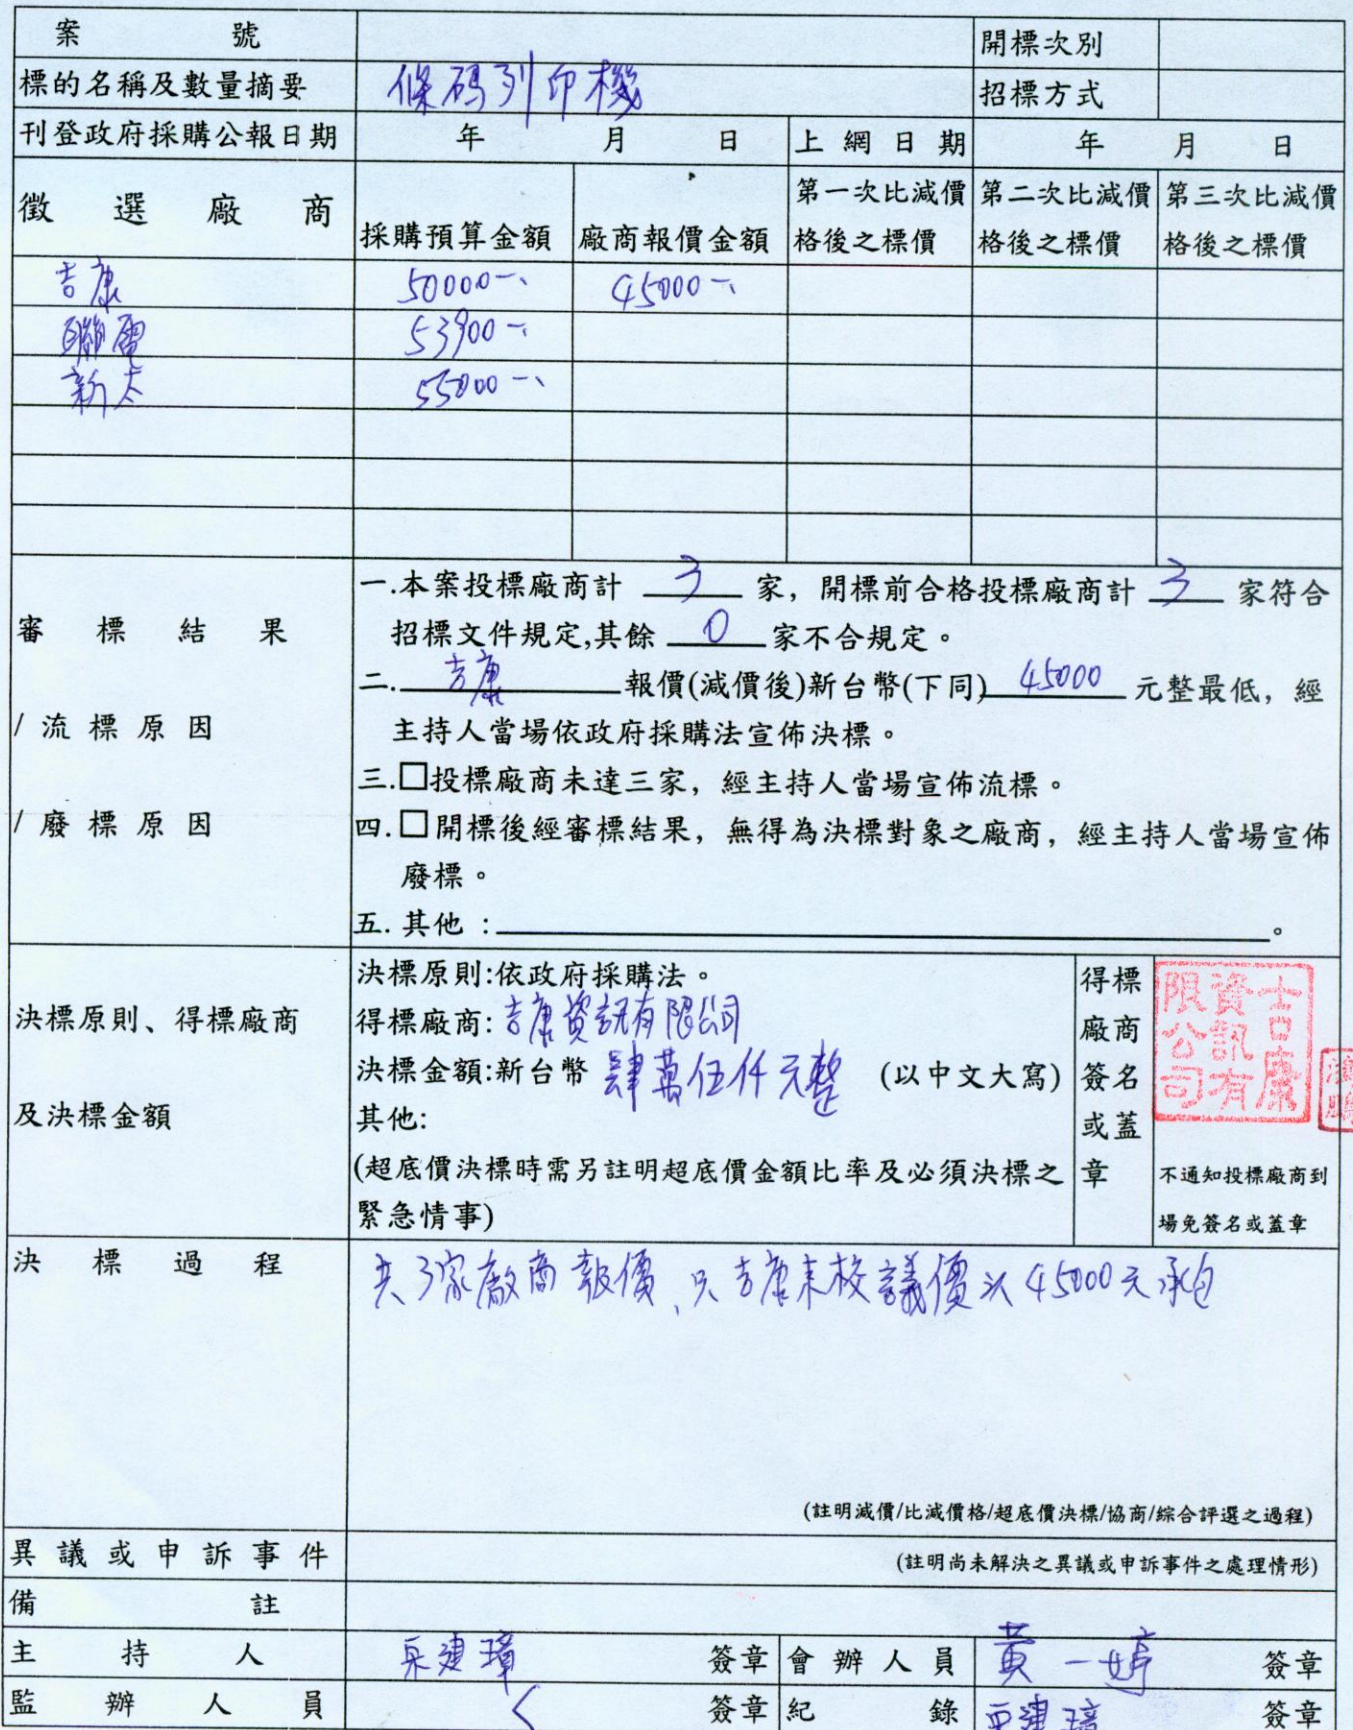 案號 開標次別
標的名稱及數量摘要 條碼列印機 招標方式
刊登政府採購公報日期 年 月 日 上網日期 年 月 日
徵選廠商 採購預算金額 廠商報價金額 第一次比減價格後之標價 第二次比減價格後之標價 第三次比減價格後之標價
吉康 50000-、 45000-、
聯電 53900-、
新太 55000-、
審標結果
/流標原因
/廢標原因
一.本案投標廠商計 3 家，開標前合格投標廠商計 3 家符合
招標文件規定,其餘 0 家不合規定。
二. 吉康 報價(減價後)新台幣(下同) 45000 元整最低，經
主持人當場依政府採購法宣佈決標。
三.□投標廠商未達三家，經主持人當場宣佈流標。
四.□開標後經審標結果，無得為決標對象之廠商，經主持人當場宣佈
廢標。
五. 其他 : 。
決標原則、得標廠商
及決標金額
決標原則:依政府採購法。
得標廠商: 吉康資訊有限公司
決標金額:新台幣 肆萬伍仟元整 (以中文大寫)
其他:
(超底價決標時需另註明超底價金額比率及必須決標之
緊急情事)
得標
廠商
簽名
或蓋
章
吉康
資訊有
限公司
不通知投標廠商到
場免簽名或蓋章
決標過程
共3家廠商報價、只吉康來校議價以45000元承包
(註明減價/比減價格/超底價決標/協商/綜合評選之過程)
異議或申訴事件 (註明尚未解決之異議或申訴事件之處理情形)
備註
主持人 建璋 簽章 會辦人員 黃一婷 簽章
監辦人員 簽章 紀錄 建璋 簽章